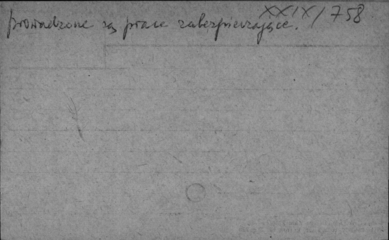 XXIX/758
prowadzone są prace zabezpieczające.